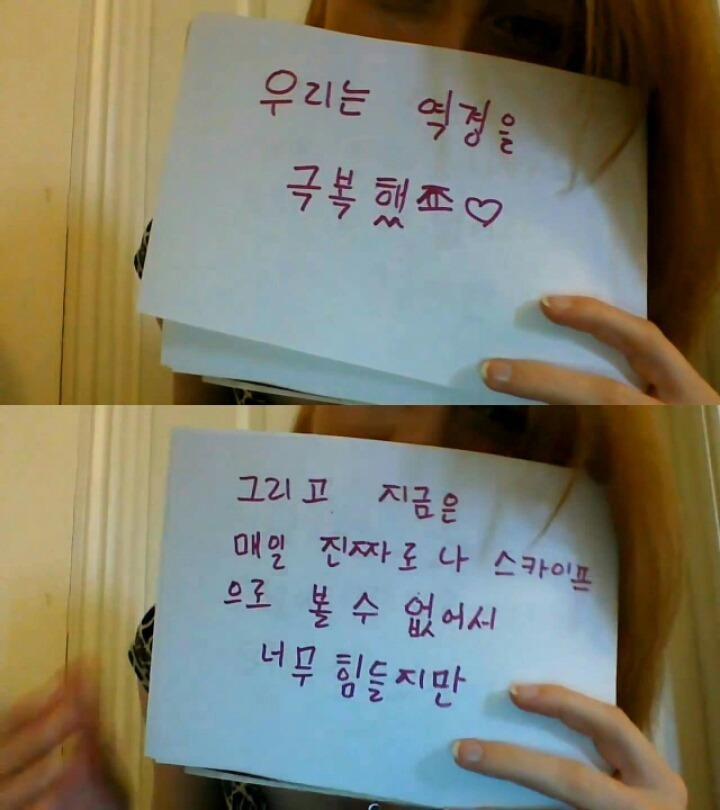 우리는 역경을
극복했죠♡
그리고 지금은
매일 진짜로나 스카이프
으로 볼 수 없어서
너무 힘들지만